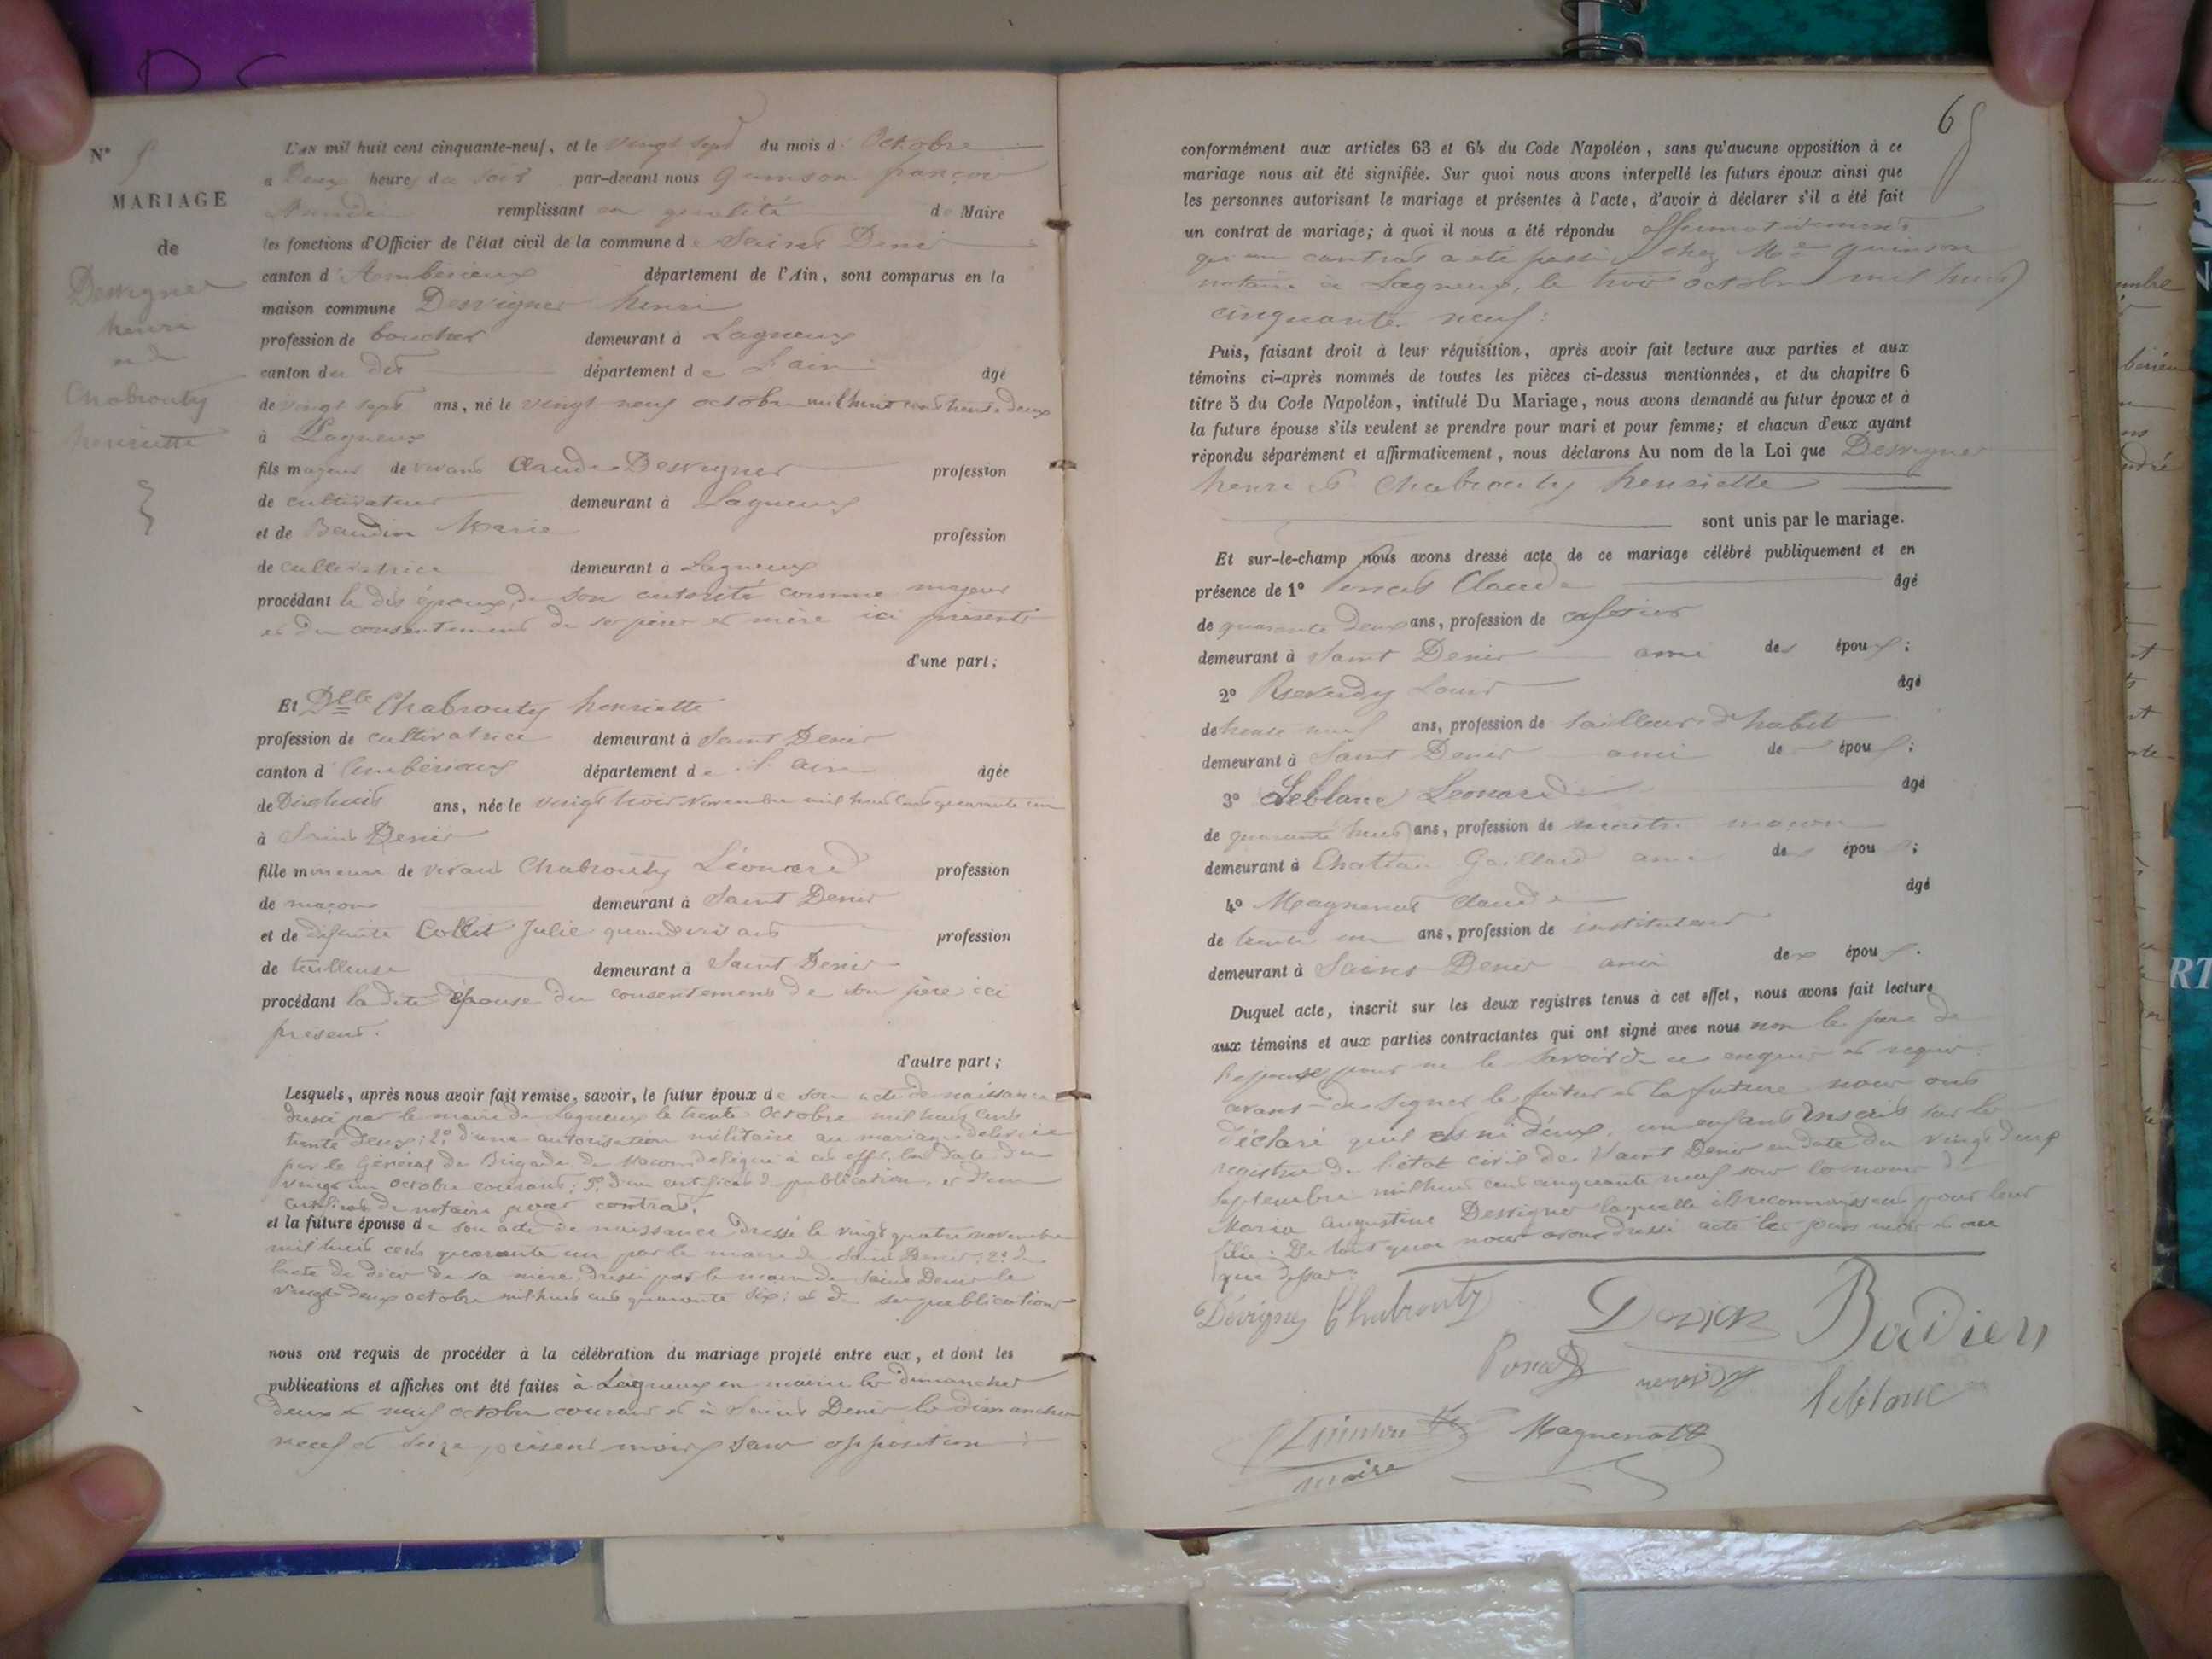 N° 5
MARIAGE
de
Desvignes
henri
et de
Chabrouty
henriette
L'AN mil huit cent cinquante-neuf, et le vingt sept du mois d' Octobre
a Deux heures du soir par-devant nous Quinson françois
remplissant en qualité de Maire
les fonctions d'Officier de l'état civil de la commune de Saint Denis
canton d'Ambérieux département de l'Ain, sont comparus en la
maison commune Desvignes henri
profession de boucher demeurant à Lagneux
canton du dit département de l'ain âgé
de vingt sept ans, né le vingt neuf octobre mil huit cent trente deux
à Lagneux
fils majeur de vivans Claude Desvignes profession
de cultivateur demeurant à Lagneux
et de Baudin Marie profession
de cultivatrice demeurant à Lagneux
procédant le dit époux de son autorité comme majeur
et du consentement de ses père et mère ici présents
d'une part;
Et Dlle Chabrouty henriette
profession de cultivatrice demeurant à Saint Denis
canton d'Ambérieux département de l'ain âgée
de Dix huit ans, née le vingt trois Novembre mil huit cent quarante un
à Saint Denis
fille mineure de vivant Chabrouty Léonard profession
de maçon demeurant à Saint Denis
et de défunte Collet Julie quand vivait profession
de tailleuse demeurant à Saint Denis
procédant la dite Epouse du consentement de son père ici
présent.
d'autre part;
Lesquels, après nous avoir fait remise, savoir, le futur époux de son acte de naissance
dressé par le maire de Lagneux le trente Octobre mil huit cent
trente deux; 2° d'une autorisation militaire au mariage délivrée
par le Général de Brigade de Macon délégué à cet effet, en date du
vingt un octobre courant; 3° d'un certificat de publication, et d'un
certificat de notaire pour contrat,
et la future épouse de son acte de naissance dressé le vingt quatre novembre
mil huit cent quarante un par le maire de Saint Denis; 2° de
l'acte de décès de sa mère, dressé par le maire de Saint Denis le
vingt deux octobre mil huit cent quarante six; et de ses publications
nous ont requis de procéder à la célébration du mariage projeté entre eux, et dont les
publications et affiches ont été faites à Lagneux en mairie les dimanches
deux et neuf octobre courant et à Saint Denis les dimanches
neuf et seize présent mois, sans opposition
65
conformément aux articles 63 et 64 du Code Napoléon, sans qu'aucune opposition à ce
mariage nous ait été signifiée. Sur quoi nous avons interpellé les futurs époux ainsi que
les personnes autorisant le mariage et présentes à l'acte, d'avoir à déclarer s'il a été fait
un contrat de mariage; à quoi il nous a été répondu affirmativement
qu'un contrat a été passé chez Me Quinson
notaire à Lagneux, le trois octobre mil huit
cinquante neuf:
Puis, faisant droit à leur réquisition, après avoir fait lecture aux parties et aux
témoins ci-après nommés de toutes les pièces ci-dessus mentionnées, et du chapitre 6
titre 5 du Code Napoléon, intitulé Du Mariage, nous avons demandé au futur époux et à
la future épouse s'ils veulent se prendre pour mari et pour femme; et chacun d'eux ayant
répondu séparément et affirmativement, nous déclarons Au nom de la Loi que Desvignes
henri et Chabrouty henriette
sont unis par le mariage.
Et sur-le-champ nous avons dressé acte de ce mariage célébré publiquement et en
présence de 1° Claude âgé
de quarante deux ans, profession de cafetier
demeurant à Saint Denis ami des époux;
2° Louis âgé
de trente neuf ans, profession de tailleur d'habit
demeurant à Saint Denis ami des époux;
3° Leblanc Leonard âgé
de quarante huit ans, profession de maître maçon
demeurant à Chateau Gaillard ami des époux;
4° Magnenat Claude âgé
de trente un ans, profession de instituteur
demeurant à Saint Denis ami des époux.
Duquel acte, inscrit sur les deux registres tenus à cet effet, nous avons fait lecture
aux témoins et aux parties contractantes qui ont signé avec nous non le père de
l'épouse pour ne le savoir de ce enquis et requis.
avant de signer le futur et la future nous ont
déclaré qu'il est né d'eux, un enfant inscrit sur le
registre de l'état civil de Saint Denis en date du vingt deux
septembre mil huit cent cinquante neuf sous le nom de
Maria Augustine Desvignes laquelle ils reconnaissent pour leur
fille. De tout quoi nous avons dressé acte les jours mois et an
que dessus.
Dévignes Chabrouty
Ponce
leblanc
Quinson
Magnenat
maire